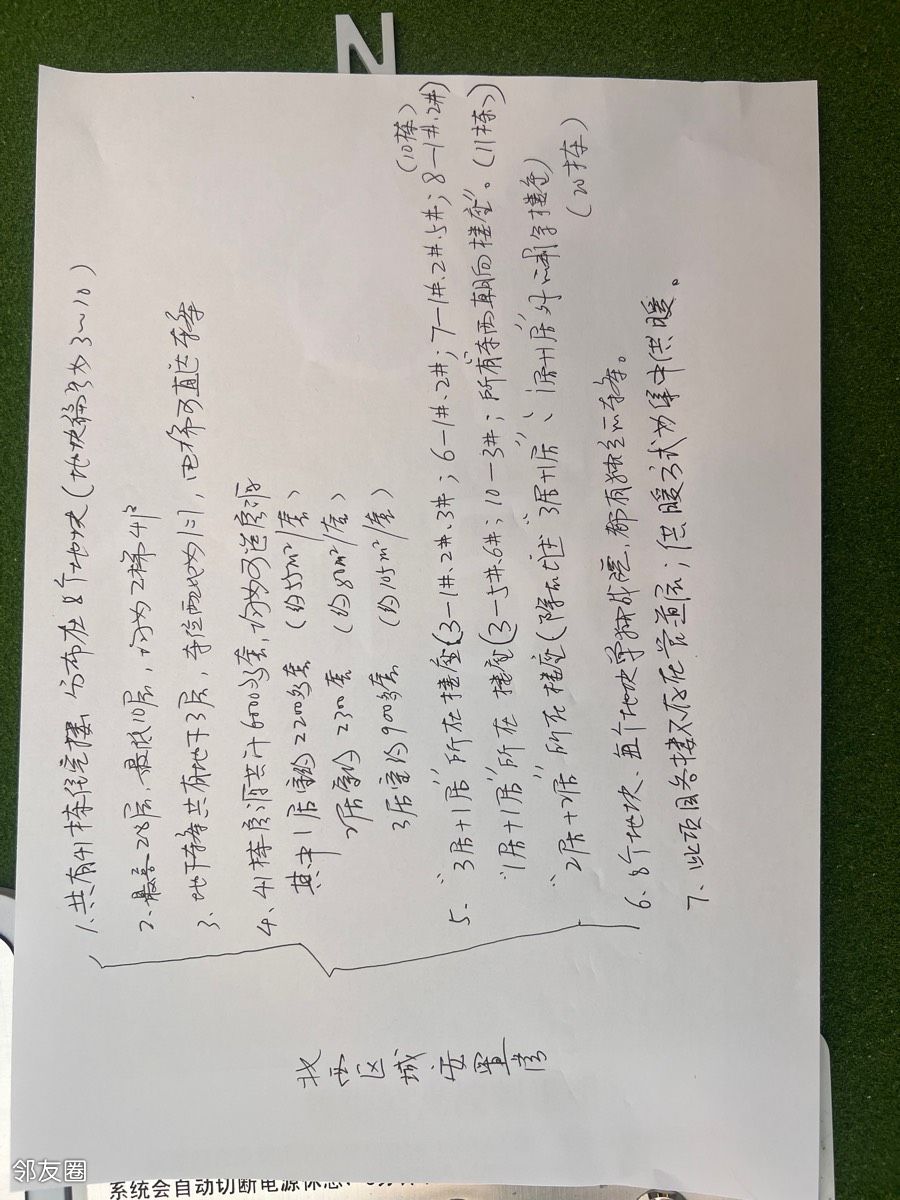 N
北西区域安置房
1、共有41栋住宅楼，分布在8个地块（地块编号为3~10）
2、最高28层，最低10层，均为2梯4户
3、地下车库共有地下3层，车位配比为1:1，电梯可直达车库
4、41栋房源共计6000多套，均为可选房源
其中1居室约2200多套 （约55m²/套）
2居室约2300套 （约80m²/套）
3居室约900多套 （约105m²/套）
（10栋）
5、"3居+1居"所在楼座（3-1#.2#.3#；6-1#.2#；7-1#.2#.5#；8-1#.2#）
"1居+1居"所在楼座（3-5#.6#；10-3#；所有"东西朝向楼座"。（11栋）
"2居+2居"所在楼座（除去上述"3居+1居"、"1居+1居"外的剩余楼座）
（20栋）
6、8个地块、每个地块单独成院，都有独立的车库。
7、此项目各楼不存在管道层；供暖方式为集中供暖。
邻友圈
系统会自动切断电源休息、